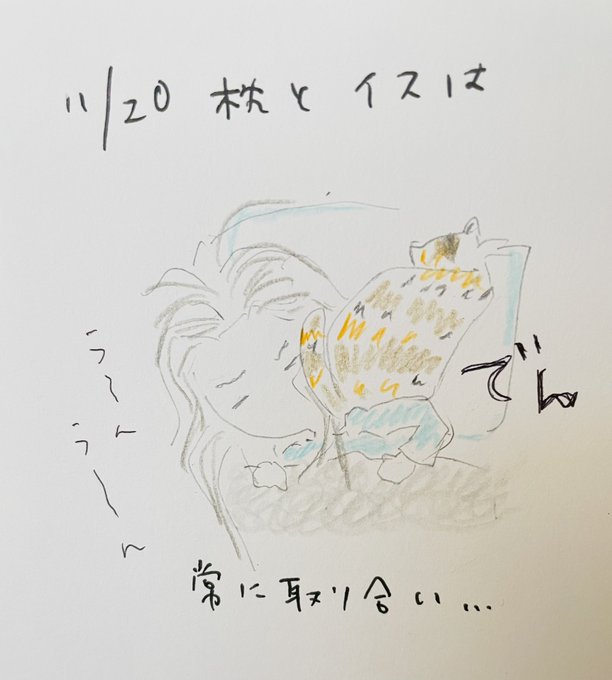 11/20 枕とイスは
でん
うーん
うーん
常に取り合い…